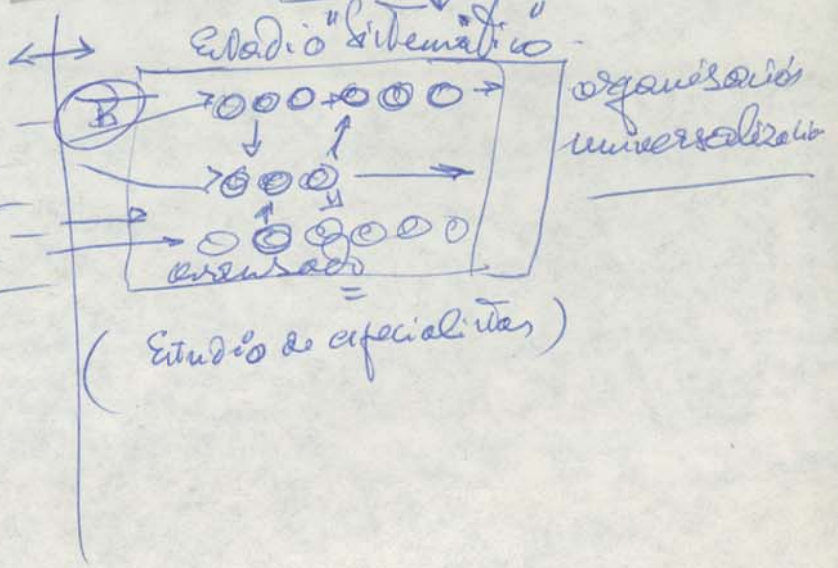 Estadio "Sistemático"
organización
universalizada
B
avanzado
(Estudio de especialistas)